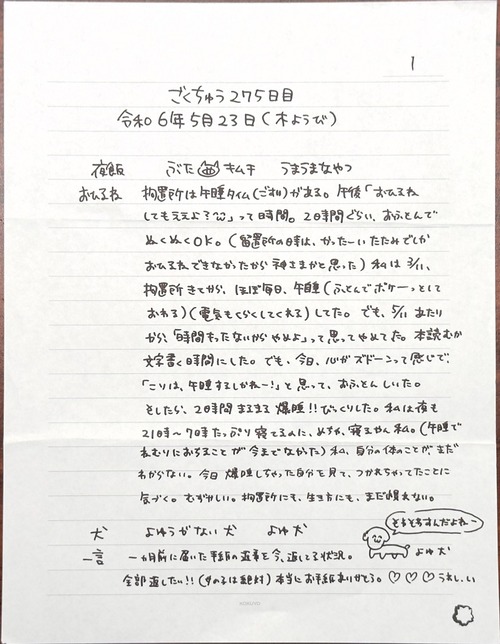 1
ごくちゅう275日目
令和6年5月23日(木ようび)
夜飯 ぶた キムチ うまうまなやつ
おひるね 拘置所は午睡タイム(ごすい)がある。午後「おひるね
してもええよ?」って時間。2時間ぐらい、おふとんで
ぬくぬくOK。(留置所の時は、かったーいたたみでしか
おひるねできなかったから神さまかと思った)私は3/11、
拘置所きてから、ほぼ毎日、午睡(ふとんでボケーっとして
おわる)(電気もくらくしてくれる)してた。でも、5/11あたり
から、「時間もったないからやめよ」って思ってやめてた。本読むか
文字書く時間にした。でも、今日、心がズドーンって感じで、
「こりは、午睡するしかねー!」と思って、おふとんしいた。
そしたら、2時間まるまる爆睡!!びっくりした。私は夜も
21時〜7時たっぷり寝てるのに、めちゃ、寝るやん私。(午睡で
ねむりにおちることが今までなかった)私、自分の体のことがまだ
わからない。今日爆睡しちゃった自分を見て、つかれちゃってたことに
気づく。むずかしい。拘置所にも、生き方にも、まだ慣れない。
そろそろすんだよねー
犬 よゆうがない犬 よゆ犬 よゆ犬
一言 一ヵ月前に届いた手紙の返事を今、返してる状況。
全部返したい!!(女の子は絶対)本当にお手紙ありがとう。♡♡♡うれしい
KOKUYO